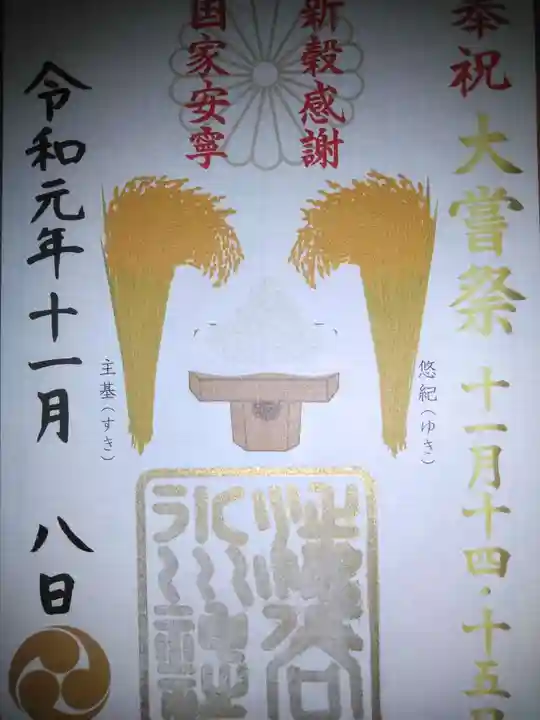 奉祝
大嘗祭
十一月十四・十五日
新穀感謝
国家安寧
悠紀(ゆき)
主基(すき)
令和元年十一月 八日